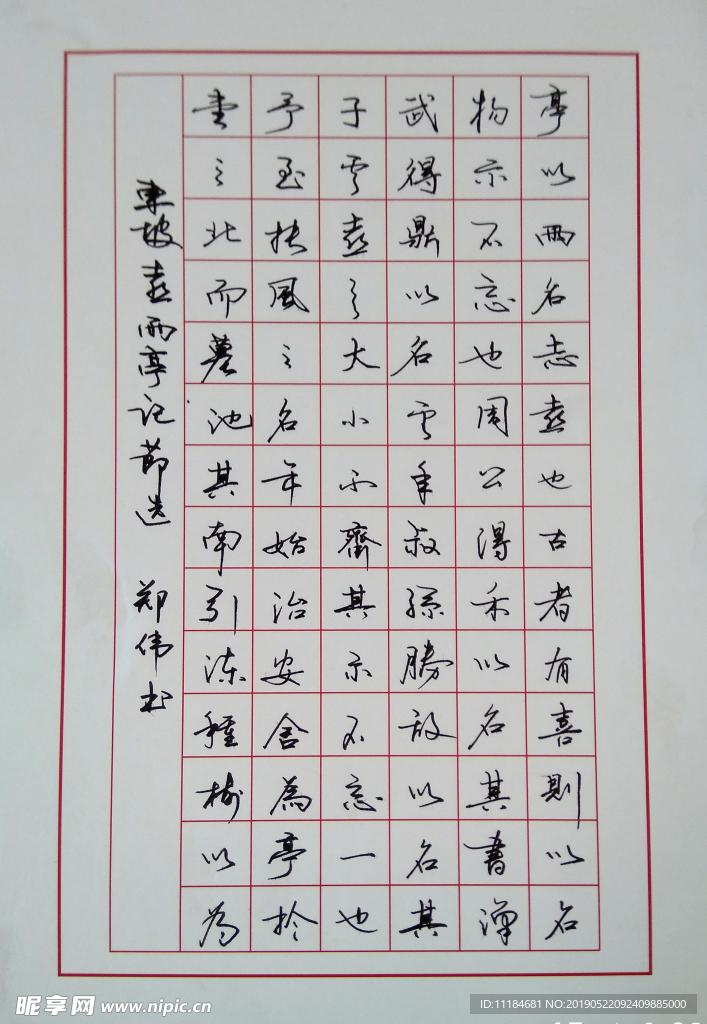 亭以雨名志喜也古者有喜則以名
物示不忘也周公得禾以名其書漢
武得鼎以名其年叔孫勝敵以名其
子其喜之大小不齊其示不忘一也
予至扶風之名年始治官舍為亭於
堂之北而鑿池其南引流種樹以為
東坡喜雨亭记節选 郑伟书
昵享网 www.nipic.cn
ID:11184681 NO:20190522092409885000